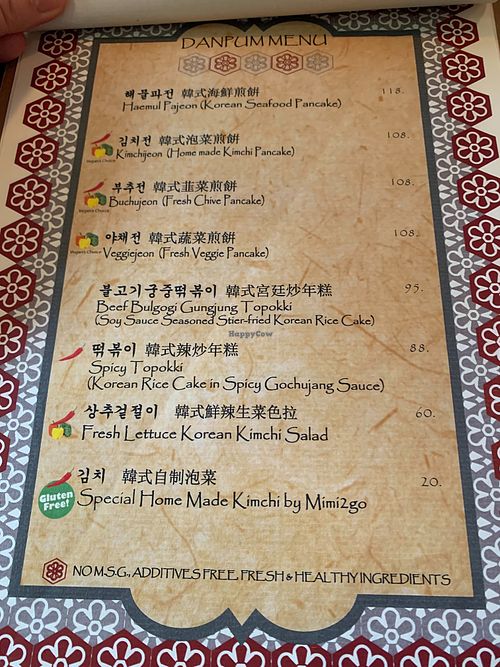 DANPUM MENU
해물파전 韓式海鮮煎餅 118.
Haemul Pajeon (Korean Seafood Pancake)
김치전 韓式泡菜煎餅 108.
Kimchijeon (Home made Kimchi Pancake)
Vegan's Choice
부추전 韓式韮菜煎餅 108.
Buchujeon (Fresh Chive Pancake)
Vegan's Choice
야채전 韓式蔬菜煎餅 108.
Veggiejeon (Fresh Veggie Pancake)
Vegan's Choice
불고기궁중떡볶이 韓式宮廷炒年糕 95.
Beef Bulgogi Gungjung Topokki
(Soy Sauce Seasoned Stier-fried Korean Rice Cake)
HappyCow
떡볶이 韓式辣炒年糕 88.
Spicy Topokki
(Korean Rice Cake in Spicy Gochujang Sauce)
상추겉절이 韓式鮮辣生菜色拉 60.
Fresh Lettuce Korean Kimchi Salad
김치 韓式自制泡菜 20.
Gluten Free!
Special Home Made Kimchi by Mimi2go
NO M.S.G., ADDITIVES FREE, FRESH & HEALTHY INGREDIENTS